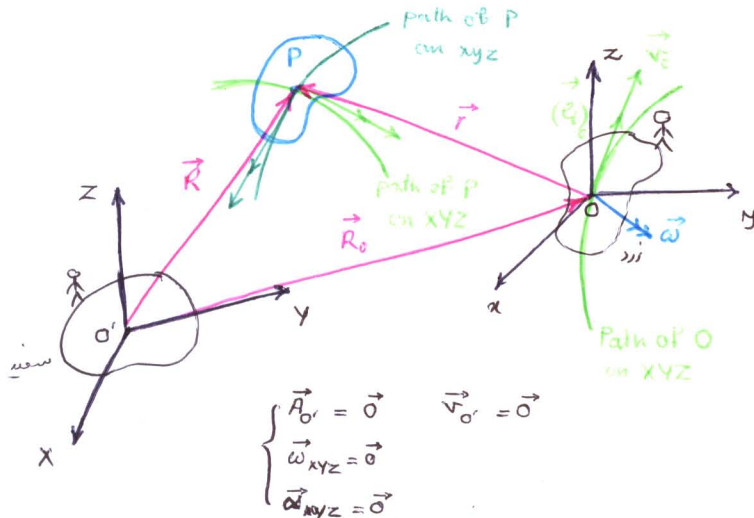 path of P
on xyz
P
z
V₀
(e_t)₀
r
R
path of P
on XYZ
O
y
ω
Z
R₀
x
Y
O'
Path of O
on XYZ
X
A_O' = 0 V_O' = 0
ω_XYZ = 0
α_XYZ = 0